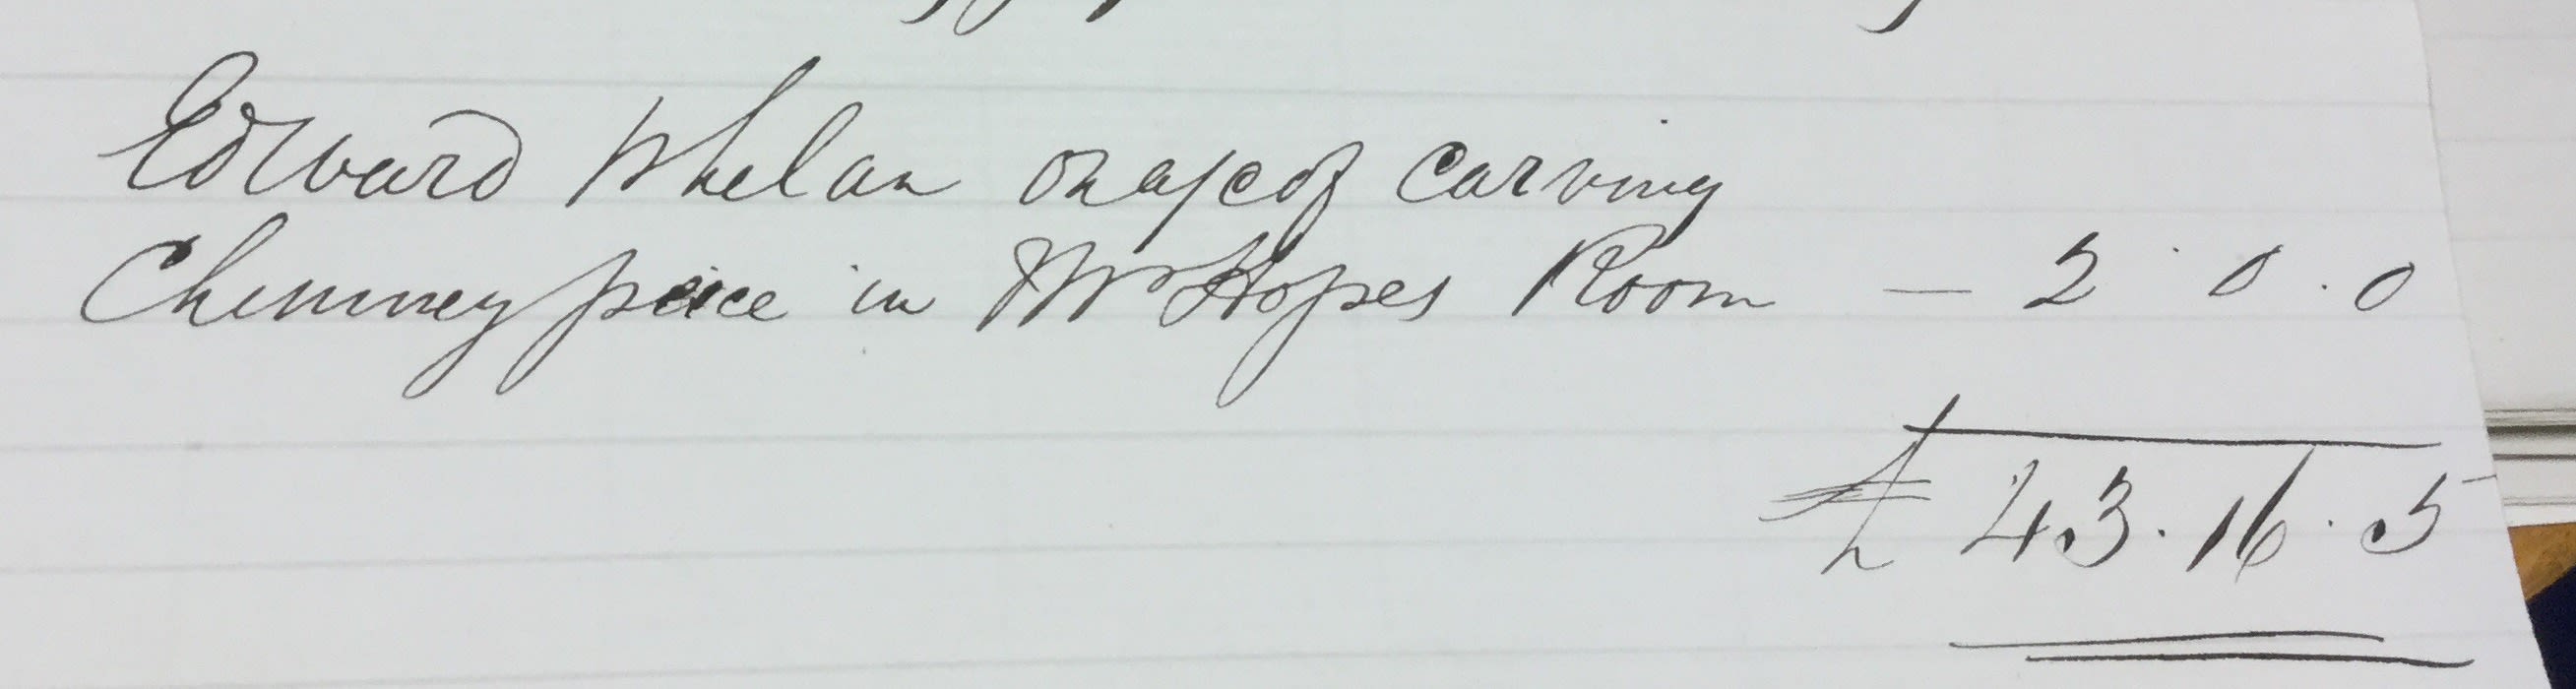 Edward Whelan on a/c of Carving
Chimney peice in Mr Hopes Room — 2 . 0 . 0
£ 43 . 16 . 5